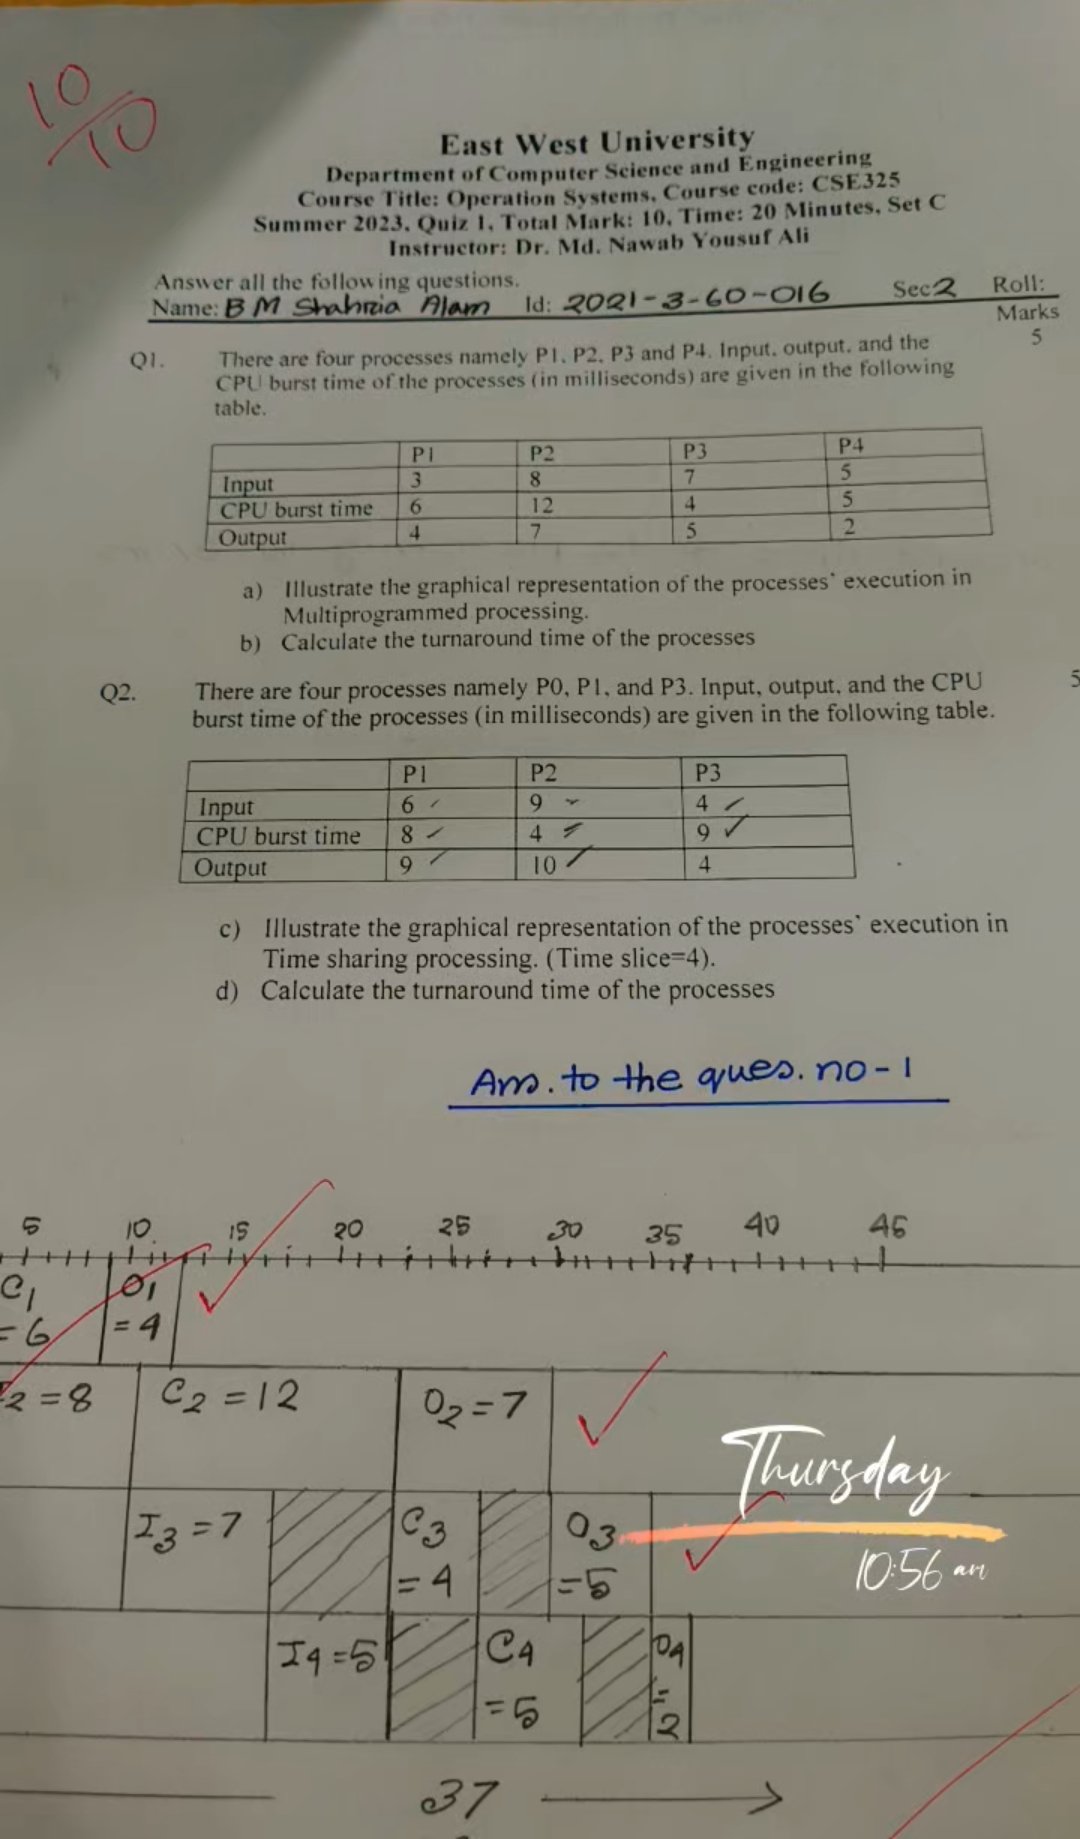 10/10
East West University
Department of Computer Science and Engineering
Course Title: Operation Systems, Course code: CSE325
Summer 2023, Quiz 1, Total Mark: 10, Time: 20 Minutes, Set C
Instructor: Dr. Md. Nawab Yousuf Ali
Answer all the following questions.
Name: B M Shahria Alam Id: 2021-3-60-016 Sec2 Roll:
Marks
Q1. There are four processes namely P1, P2, P3 and P4. Input, output, and the 5
CPU burst time of the processes (in milliseconds) are given in the following
table.
P1 P2 P3 P4
Input 3 8 7 5
CPU burst time 6 12 4 5
Output 4 7 5 2
a) Illustrate the graphical representation of the processes' execution in
Multiprogrammed processing.
b) Calculate the turnaround time of the processes
Q2. There are four processes namely P0, P1, and P3. Input, output, and the CPU 5
burst time of the processes (in milliseconds) are given in the following table.
P1 P2 P3
Input 6 9 4
CPU burst time 8 4 9
Output 9 10 4
c) Illustrate the graphical representation of the processes' execution in
Time sharing processing. (Time slice=4).
d) Calculate the turnaround time of the processes
Ans. to the ques. no-1
5 10 15 20 25 30 35 40 45
C1 O1
=6 =4
2 =8 C2 =12 O2=7
Thursday
I3 =7 C3 O3
=4 =5
10:56 am
I4 =5 C4 O4
=5 =2
37